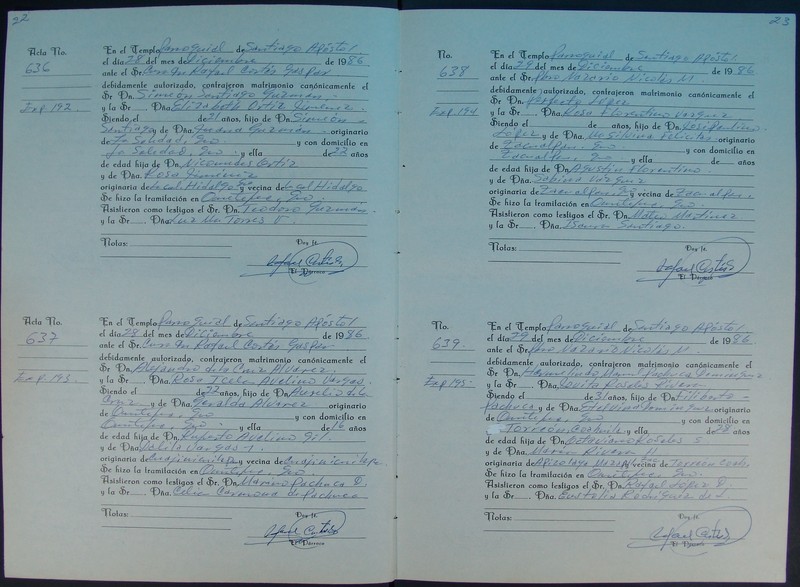 22
Acta No.
636
Exp. 192
En el Templo Parroquial de Santiago Apóstol
el día 28 del mes de Diciembre de 1986
ante el Sr. Rafael Cortés Gaspar
debidamente autorizado, contrajeron matrimonio canónicamente el
Sr. Dn. Simeón Santiago Guzmán
y la Sr. Dña. Elizabeth Ortiz Jimenez
Siendo el de 21 años, hijo de Dn. Simeón
Santiago y de Dña. Guzmán originario
de La Soledad, Gro y con domicilio en
La Soledad, Gro y ella de 22 años
de edad hija de Dn. Nicomedes Ortiz
y de Dña. Rosa Jimenez
originaria de Hidalgo y vecina de Hidalgo
Se hizo la tramitación en Ometepec, Gro.
Asistieron como testigos el Sr. Dn. Teodoro Guzmán
y la Sr. Dña. Luz Ma Torres
Notas:
Doy fe.
Rafael Cortés
El Párroco
Acta No.
637
Exp. 193
En el Templo Parroquial de Santiago Apóstol
el día 28 del mes de Diciembre de 1986
ante el Sr. Rafael Cortés Gaspar
debidamente autorizado, contrajeron matrimonio canónicamente el
Sr. Dn. Alejandro de la Cruz Alvarez
y la Sr. Dña. Rosa Icela Avelino Vargas
Siendo el de 22 años, hijo de Dn. Aurelio de la
Cruz y de Dña. Geralda Alvarez originario
de Ometepec, Gro y con domicilio en
Ometepec, Gro y ella de 16 años
de edad hija de Dn. Ruperto Avelino Gil
y de Dña. Vargas
originaria de Cuajinicuilapa y vecina de Cuajinicuilapa
Se hizo la tramitación en Ometepec, Gro
Asistieron como testigos el Sr. Dn. Marino Pacheco
y la Sr. Dña. Celia Carmona de Pacheco
Notas:
Doy fe.
Rafael Cortés
El Párroco
23
Acta No.
638
Exp. 194
En el Templo Parroquial de Santiago Apóstol
el día 29 del mes de Diciembre de 1986
ante el Sr. Pbro Nazario Nicolás M.
debidamente autorizado, contrajeron matrimonio canónicamente el
Sr. Dn. Perfecto López
y la Sr. Dña. Rosa Florentino Vazquez
Siendo el de años, hijo de Dn.
López y de Dña. originario
de Gro y con domicilio en
Gro y ella de años
de edad hija de Dn. Agustín Florentino
y de Dña. Sabina Vazquez
originaria de y vecina de
Se hizo la tramitación en Ometepec, Gro
Asistieron como testigos el Sr. Dn. Mateo Martinez
y la Sr. Dña. Santiago
Notas:
Doy fe.
Rafael Cortés
El Párroco
Acta No.
639
Exp. 195
En el Templo Parroquial de Santiago Apóstol
el día 29 del mes de Diciembre de 1986
ante el Sr. Pbro Nazario Nicolás M.
debidamente autorizado, contrajeron matrimonio canónicamente el
Sr. Dn. Pacheco Dominguez
y la Sr. Dña. Rosales Rivera
Siendo el de 31 años, hijo de Dn. Filiberto
Pacheco y de Dña. Dominguez originario
de Ometepec, Gro y con domicilio en
Torreón Coahuila y ella de 28 años
de edad hija de Dn. Octaviano Rosales S
y de Dña. Maria Rivera
originaria de y vecina de Torreón Coah.
Se hizo la tramitación en Ometepec, Gro
Asistieron como testigos el Sr. Dn. Rafael López
y la Sr. Dña. Eustolia Rodriguez de L
Notas:
Doy fe.
Rafael Cortés
El Párroco